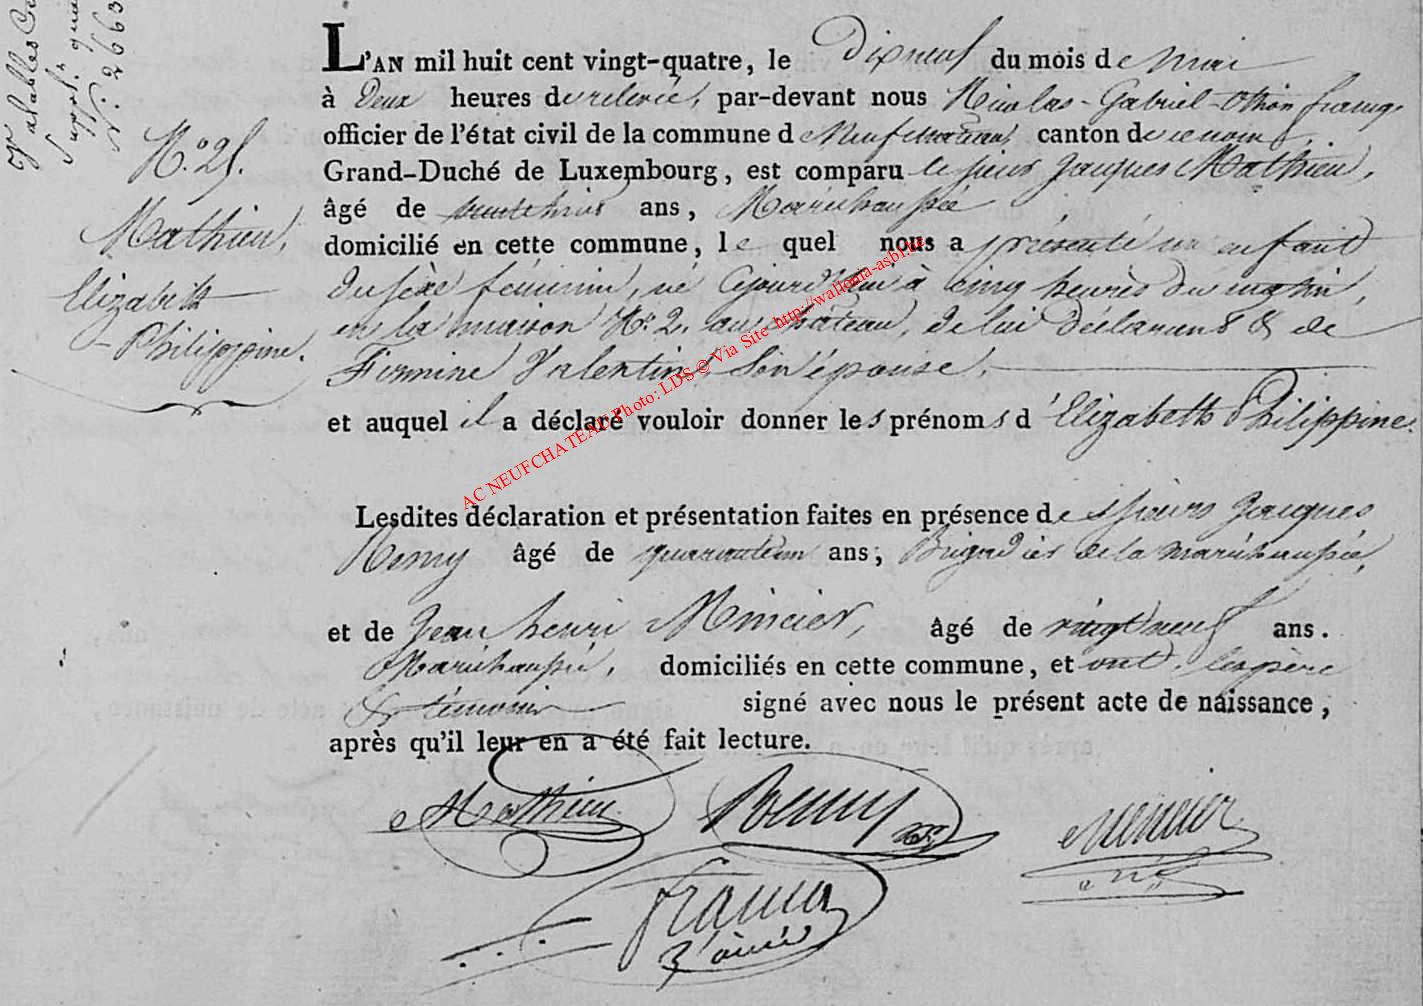 N.º 2663
N.º 25.
Mathieu,
Elizabeth
Philippine.
L'AN mil huit cent vingt-quatre, le Dixneuf du mois de Mai
à Deux heures de relevée, par-devant nous Nicolas-Gabriel-Othon
officier de l'état civil de la commune de Neufchateau, canton de ce nom,
Grand-Duché de Luxembourg, est comparu le sieur Jacques Mathieu,
âgé de ans, Maréchaussée
domicilié en cette commune, le quel nous a présenté un enfant
du sexe féminin, né cejourd'hui à cinq heures du matin,
en la maison N.º 2. au château, de lui déclarant & de
Firmine Valentin, son épouse.
et auquel il a déclaré vouloir donner les prénoms d'Elizabeth Philippine.
Lesdites déclaration et présentation faites en présence de sieurs Jacques
Remy âgé de ans, Brigadier de la maréchaussée,
et de Jean henri Mincier, âgé de vingt neuf ans.
Maréchaussée, domiciliés en cette commune, et ont, les père
& témoins signé avec nous le présent acte de naissance,
après qu'il leur en a été fait lecture.
Mathieu
Remy
AC NEUFCHATEAU Photo: LDS © Via Site http://wallonia-asbl.be